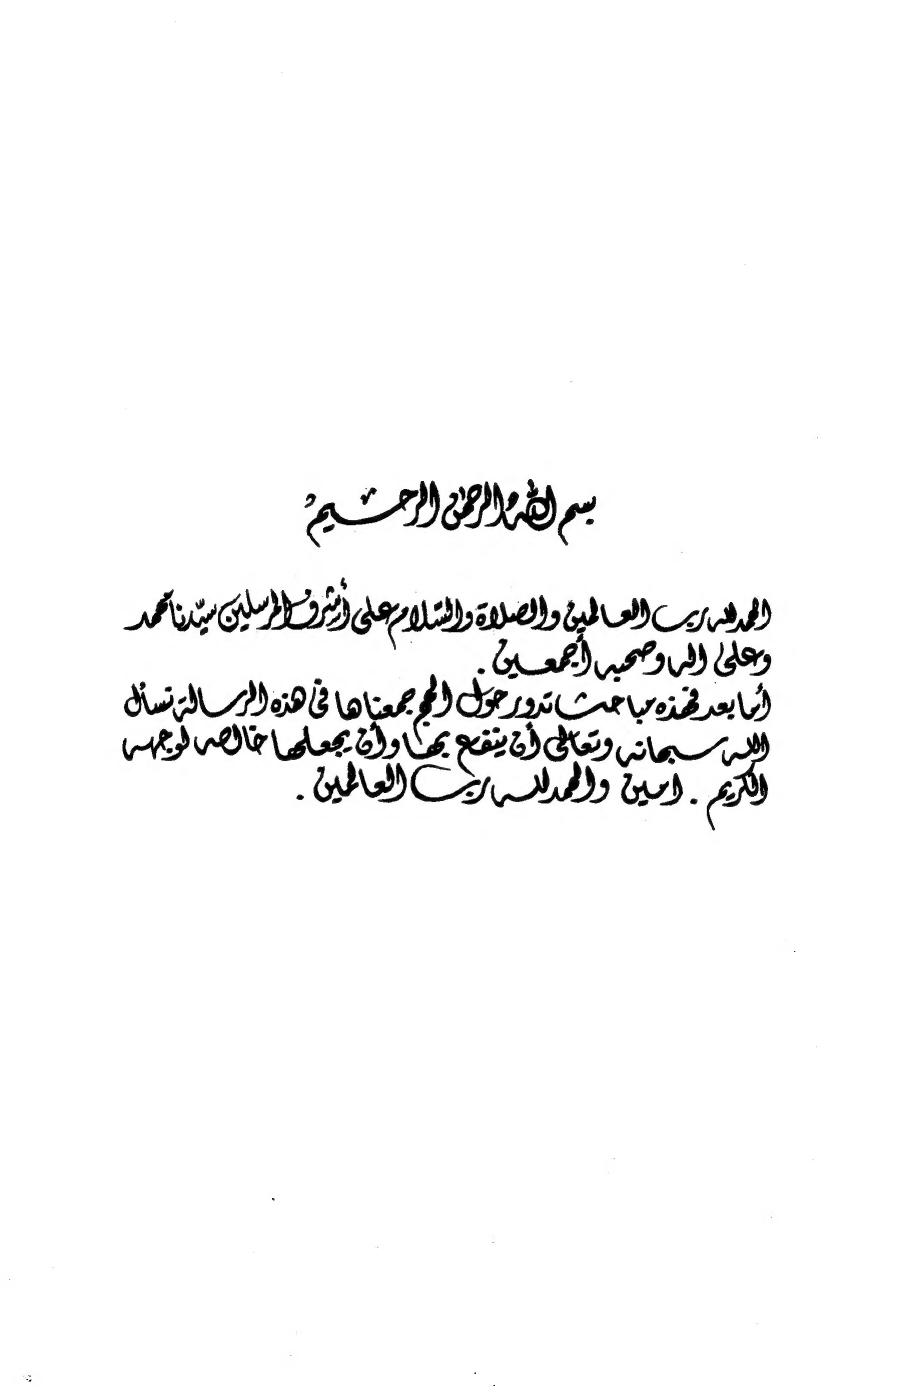 بسم الله الرحمن الرحيم
الحمد لله رب العالمين والصلاة والسلام على أشرف المرسلين سيّدنا محمد
وعلى اله وصحبه أجمعين .
أما بعد فهذه مباحث تدور حول الحج جمعناها في هذه الرسالة نسأل
الله سبحانه وتعالى أن ينفع بها وأن يجعلها خالصه لوجهه
الكريم . امين والحمد لله رب العالمين .